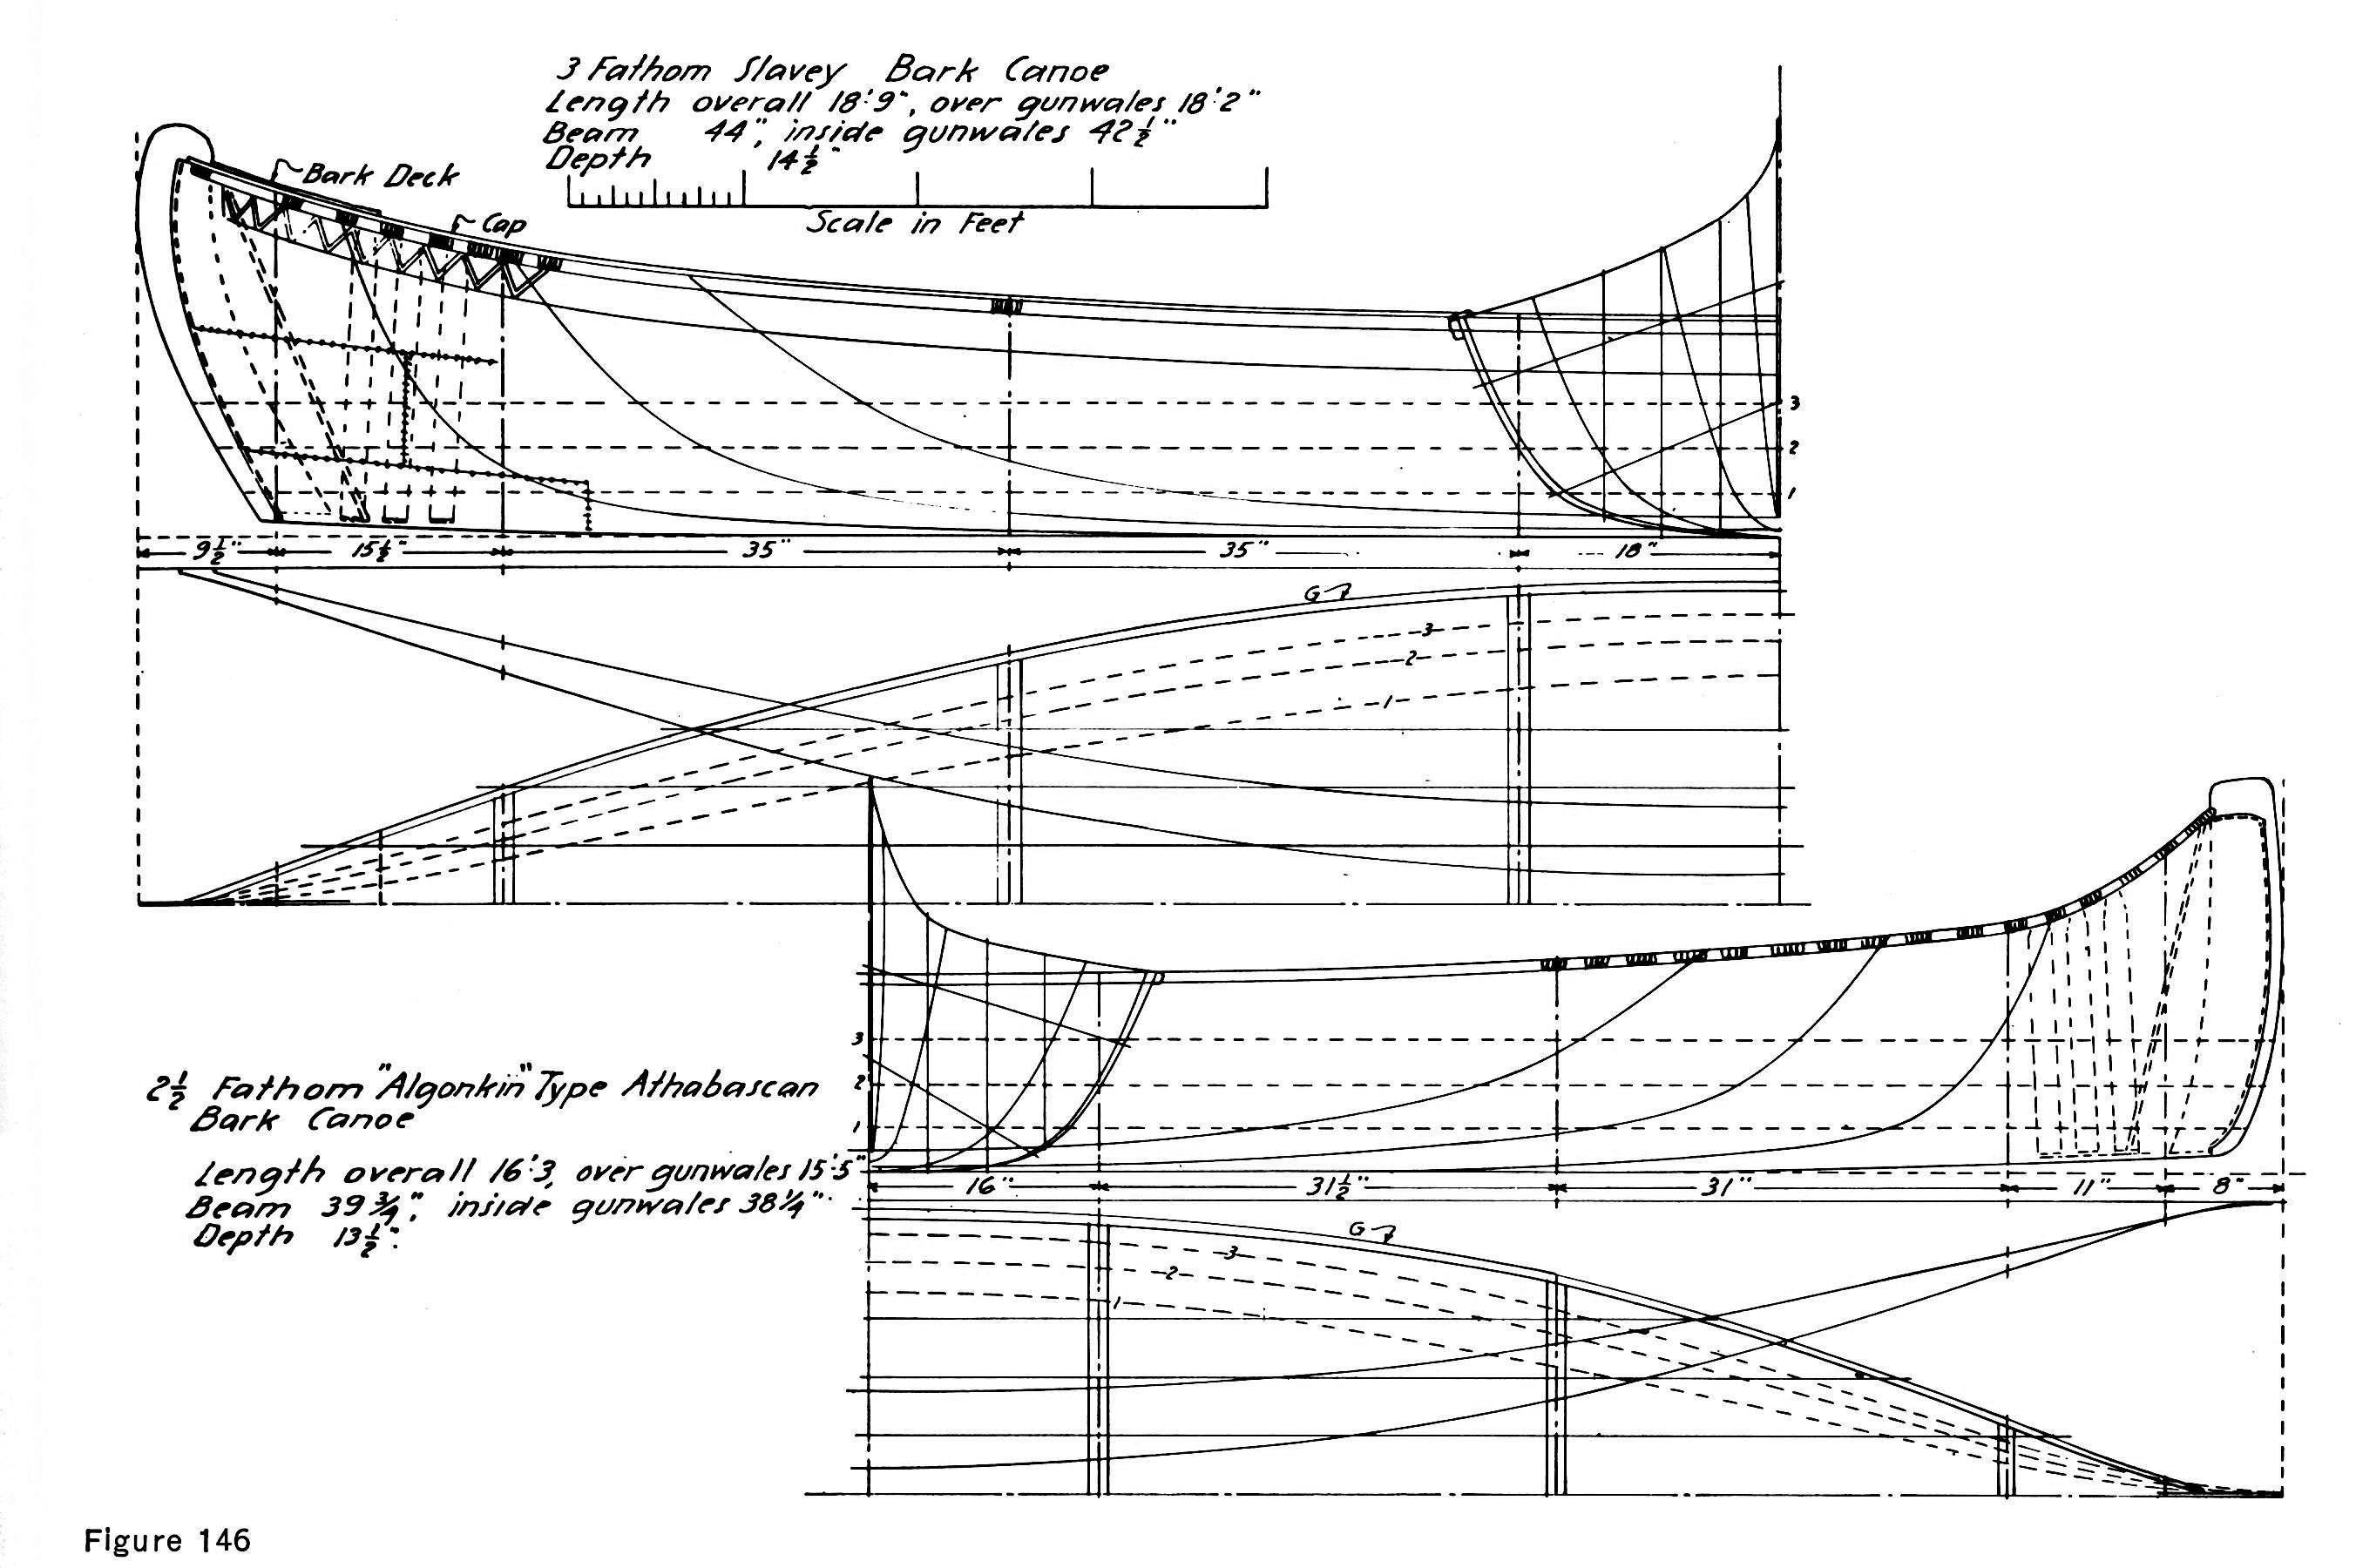 3 Fathom Slavey Bark Canoe
Length overall 18'·9", over gunwales 18'·2"
Beam 44", inside gunwales 42½"
Depth 14½"
Bark Deck
Cap
Scale in Feet
3
2
1
9½" 15½" 35" 35" 18"
G
3
2
1
3
2
1
2½ Fathom "Algonkin" Type Athabascan
Bark Canoe
Length overall 16'·3, over gunwales 15'·5"
Beam 39¾", inside gunwales 38¼"
Depth 13½".
16" 31½" 31" 11" 8"
G
3
2
1
Figure 146